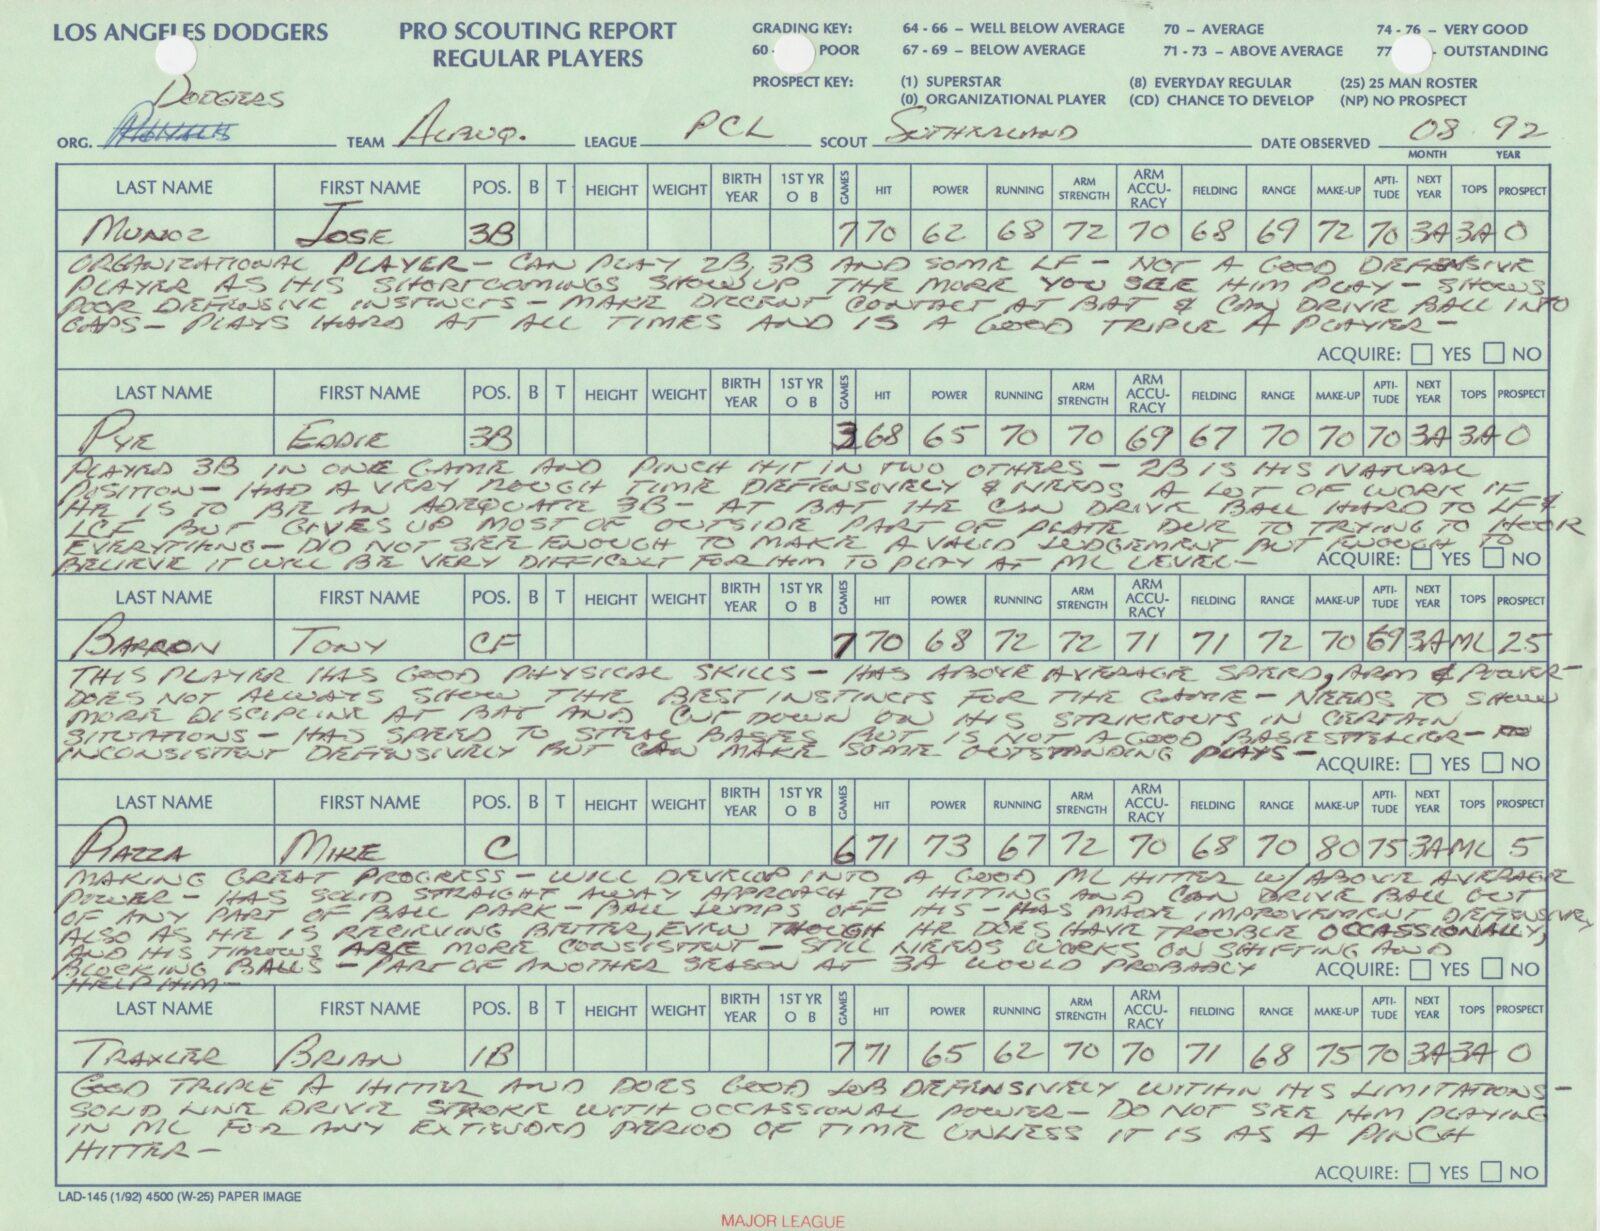 LOS ANGELES DODGERS PRO SCOUTING REPORT GRADING KEY: 64 - 66 – WELL BELOW AVERAGE 70 – AVERAGE 74 - 76 – VERY GOOD
REGULAR PLAYERS 60 - POOR 67 - 69 – BELOW AVERAGE 71 - 73 – ABOVE AVERAGE 77 - OUTSTANDING
PROSPECT KEY: (1) SUPERSTAR (8) EVERYDAY REGULAR (25) 25 MAN ROSTER
(0) ORGANIZATIONAL PLAYER (CD) CHANCE TO DEVELOP (NP) NO PROSPECT
DODGERS
ORG. TEAM ALBUQ. LEAGUE PCL SCOUT SUTHERLAND DATE OBSERVED 08 92
MONTH YEAR
LAST NAME FIRST NAME POS. B T HEIGHT WEIGHT BIRTH YEAR 1ST YR O B GAMES HIT POWER RUNNING ARM STRENGTH ARM ACCU-RACY FIELDING RANGE MAKE-UP APTI-TUDE NEXT YEAR TOPS PROSPECT
MUNOZ JOSE 3B 7 70 62 68 72 70 68 69 72 70 3A 3A 0
ORGANIZATIONAL PLAYER – CAN PLAY 2B, 3B AND SOME LF – NOT A GOOD DEFENSIVE
PLAYER AS HIS SHORTCOMINGS SHOW UP THE MORE YOU SEE HIM PLAY – SHOWS
POOR DEFENSIVE INSTINCTS – MAKE DECENT CONTACT AT BAT & CAN DRIVE BALL INTO
GAPS – PLAYS HARD AT ALL TIMES AND IS A GOOD TRIPLE A PLAYER –
ACQUIRE: YES NO
LAST NAME FIRST NAME POS. B T HEIGHT WEIGHT BIRTH YEAR 1ST YR O B GAMES HIT POWER RUNNING ARM STRENGTH ARM ACCU-RACY FIELDING RANGE MAKE-UP APTI-TUDE NEXT YEAR TOPS PROSPECT
PYE EDDIE 3B 3 68 65 70 70 69 67 70 70 70 3A 3A 0
PLAYED 3B IN ONE GAME AND PINCH HIT IN TWO OTHERS – 2B IS HIS NATURAL
POSITION – HAD A VERY ROUGH TIME DEFFENSIVELY & NEEDS A LOT OF WORK IF
HE IS TO BE AN ADEQUATE 3B – AT BAT HE CAN DRIVE BALL HARD TO LF &
LCF BUT GIVES UP MOST OF OUTSIDE PART OF PLATE DUE TO TRYING TO HOOK
EVERYTHING – DID NOT SEE ENOUGH TO MAKE A VALID JUDGEMENT BUT ENOUGH TO
BELIEVE IT WILL BE VERY DIFFICULT FOR HIM TO PLAY AT ML LEVEL –
ACQUIRE: YES NO
LAST NAME FIRST NAME POS. B T HEIGHT WEIGHT BIRTH YEAR 1ST YR O B GAMES HIT POWER RUNNING ARM STRENGTH ARM ACCU-RACY FIELDING RANGE MAKE-UP APTI-TUDE NEXT YEAR TOPS PROSPECT
BARRON TONY CF 7 70 68 72 72 71 71 72 70 69 3A ML 25
THIS PLAYER HAS GOOD PHYSICAL SKILLS – HAS ABOVE AVERAGE SPEED, ARM & POWER –
DOES NOT ALWAYS SHOW THE BEST INSTINCTS FOR THE GAME – NEEDS TO SHOW
MORE DISCIPLINE AT BAT AND CUT DOWN ON HIS STRIKEOUTS IN CERTAIN
SITUATIONS – HAS SPEED TO STEAL BASES BUT IS NOT A GOOD BASESTEALER –
INCONSISTENT DEFENSIVELY BUT CAN MAKE SOME OUTSTANDING PLAYS –
ACQUIRE: YES NO
LAST NAME FIRST NAME POS. B T HEIGHT WEIGHT BIRTH YEAR 1ST YR O B GAMES HIT POWER RUNNING ARM STRENGTH ARM ACCU-RACY FIELDING RANGE MAKE-UP APTI-TUDE NEXT YEAR TOPS PROSPECT
PIAZZA MIKE C 6 71 73 67 72 70 68 70 80 75 3A ML 5
MAKING GREAT PROGRESS – WILL DEVELOP INTO A GOOD ML HITTER W/ ABOVE AVERAGE
POWER – HAS SOLID STRAIGHT AWAY APPROACH TO HITTING AND CAN DRIVE BALL OUT
OF ANY PART OF BALL PARK – BALL JUMPS OFF HIS – HAS MADE IMPROVEMENT DEFENSIVELY
ALSO AS HE IS RECEIVING BETTER, EVEN THOUGH HE DOES HAVE TROUBLE OCCASSIONALLY,
AND HIS THROWS ARE MORE CONSISTENT – STILL NEEDS WORKS ON SHIFTING AND
BLOCKING BALLS – PART OF ANOTHER SEASON AT 3A WOULD PROBABLY
HELP HIM –
ACQUIRE: YES NO
LAST NAME FIRST NAME POS. B T HEIGHT WEIGHT BIRTH YEAR 1ST YR O B GAMES HIT POWER RUNNING ARM STRENGTH ARM ACCU-RACY FIELDING RANGE MAKE-UP APTI-TUDE NEXT YEAR TOPS PROSPECT
TRAXLER BRIAN 1B 7 71 65 62 70 70 71 68 75 70 3A 3A 0
GOOD TRIPLE A HITTER AND DOES GOOD JOB DEFENSIVELY WITHIN HIS LIMITATIONS –
SOLID LINE DRIVE STROKE WITH OCCASSIONAL POWER – DO NOT SEE HIM PLAYING
IN ML FOR ANY EXTENDED PERIOD OF TIME UNLESS IT IS AS A PINCH
HITTER –
ACQUIRE: YES NO
LAD-145 (1/92) 4500 (W-25) PAPER IMAGE
MAJOR LEAGUE